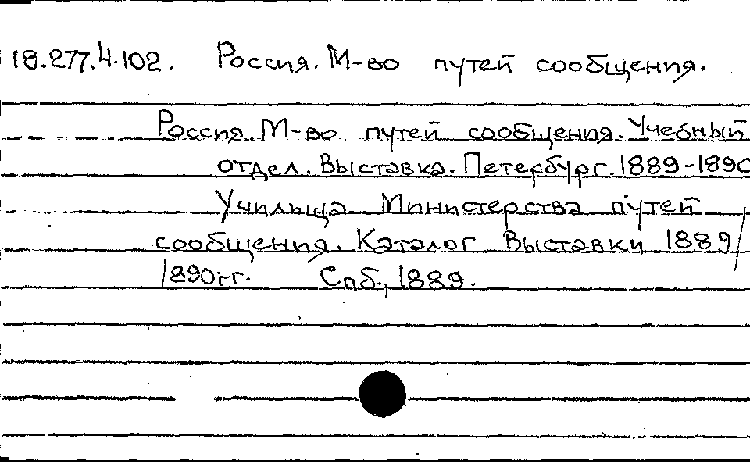 18.277.4.102. Россия. М-во путей сообщения.
Россия. М-во путей сообщения. Учебный
отдел. Выставка. Петербург. 1889-1890
Училища Министерства путей
сообщения. Каталог Выставки 1889/
1890гг. Спб., 1889.